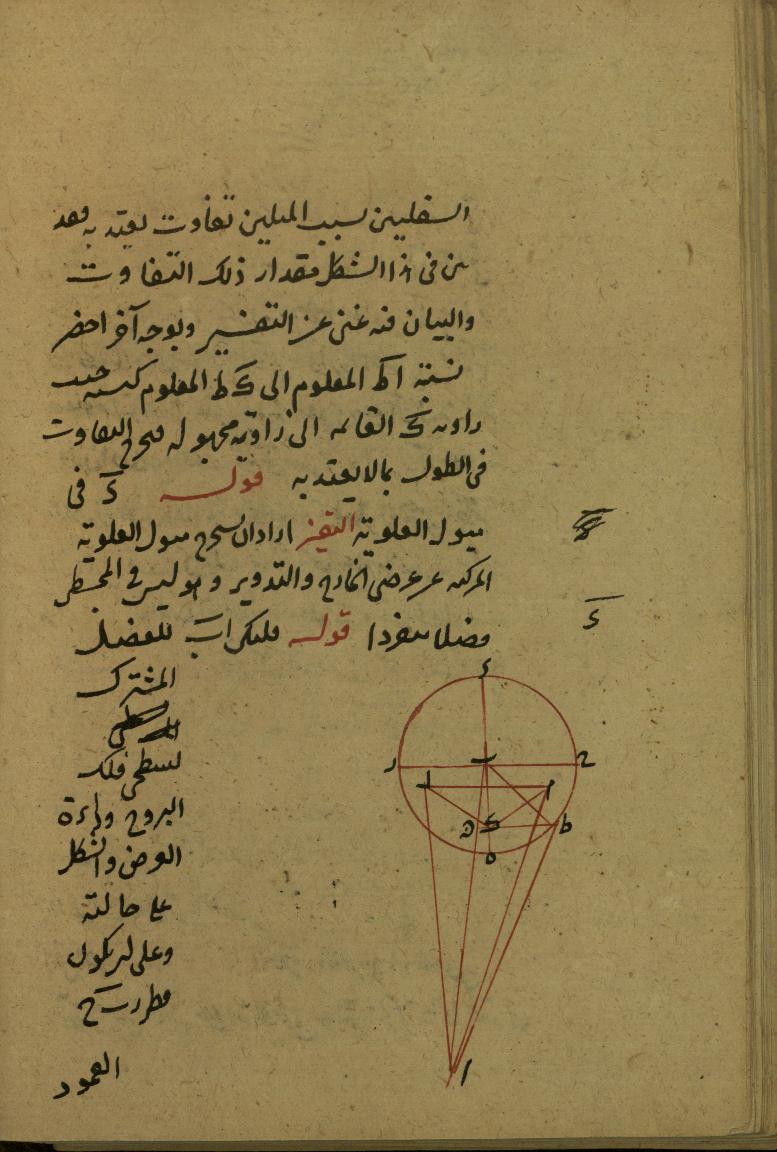 السفليين بسبب الميلين تفاوت يعتد به وقد
بين فى هذا الشكل مقدار ذلك التفاوت
والبيان فيه غنى عن التفسير وبوجه آخر اخصر
نسبة اكط المعلوم الى كط المعلوم كنسبة جيب
زاوية ك القائمة الى زاوية مجهولة فيخرج التفاوت
فى الطول بما لا يعتد به قوله ى فى
ميول العلوية اراد ان يستخرج ميول العلوية
المركبة عن عرضى الخارج والتدوير و ليس فى المجسطى
فصلا منفردا قوله فليكن اب للفصل
المشترك
لسطحى فلك
البروج ودائرة
العرض والشكل
على حالته
وعلى ان يكون
قطر رح
العمود
ى
د
ر
ب
ح
ل
م
ن
ك
ط
ه
ا